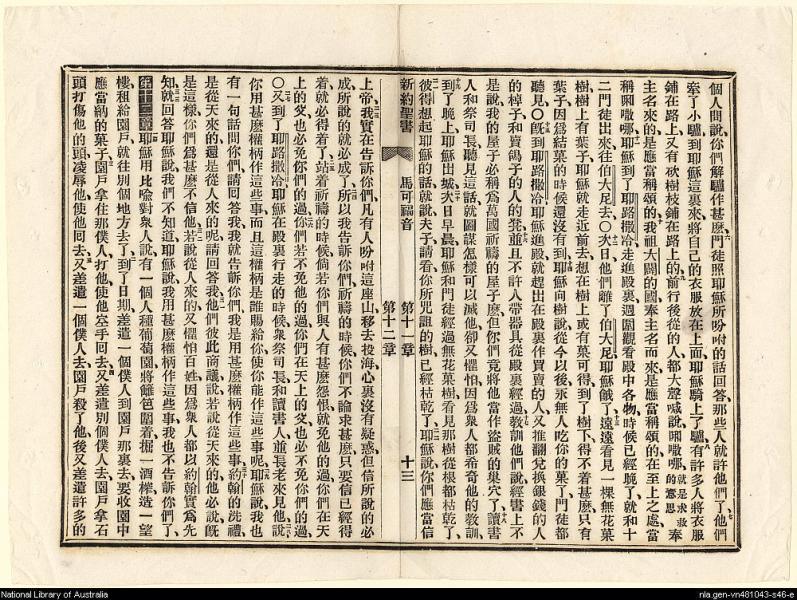 個人問說、你們解驢作甚麽、門徒照耶穌所吩咐的話回答、那些人就許他們了、他們
牽了小驢到耶穌這裏來、將自己的衣服放在上面、耶穌騎上了驢、有許多人將衣服
鋪在路上、又有砍樹枝鋪在路上的、前行後從的人都大聲喊說、哪就是求救的意思奉
主名來的、是應當稱頌的、我祖大闢的國、奉主名而來、是應當稱頌的、在至上之處當
稱哪、耶穌到了耶路撒冷、走進殿裏、週圍觀看殿中各物、時候已經晚了、就和十
二門徒出來往伯大尼去、○次日他們離了伯大尼、耶穌餓了、遠遠看見一棵無花菓
樹、樹上有葉子、耶穌就走近前去、想在樹上或有菓可得、到了樹下得不着甚麽、只有
葉子、因爲結菓的時候還沒有到、耶穌向樹說、從今以後永無人吃你的菓了、門徒都
聽見、○旣到耶路撒冷、耶穌進殿、就趕出在殿裏作買賣的人、又推翻兌換銀錢的人
的棹子、和賣鴿子的人的凳、並且不許人帶器具從殿裏經過、敎訓他們說、經書上不
是說、我的屋子必稱爲萬國祈禱的屋子麽、但你們竟將他當作盜賊的巢穴了、讀書
人和祭司長聽見這話、就圖謀怎樣可以滅他、卻又懼怕、因爲衆人都希奇他的敎訓、
到了晚上、耶穌出城、次日早晨、耶穌和門徒經過無花菓樹、看見那樹從根都枯乾了、
彼得想起耶穌的話、就說、夫子請看、你所咒詛的樹已經枯乾了、耶穌說、你們應當信
新約聖書 馬可福音 第十一章 第十二章 十三
上帝、我實在告訴你們、凡有人吩咐這座山移去投海、心裏沒有疑惑、但信所說的必
成、所說的就必成了、所以我告訴你們、祈禱的時候、你們不論求甚麽、只要信已經得
着、就必得着了、站着祈禱的時候、倘若你們與人有甚麽怨恨、就免他的過、你們在天
上的父也必免你們的過、你們若不免他的過、你們在天上的父也必不免你們的過、
○又到了耶路撒冷、耶穌在殿裏行走的時候、衆祭司長和讀書人並長老來見他、說、
你用甚麽權柄作這些事、而且這權柄是誰賜給你使你能作這些事呢、耶穌說、我也
有一句話問你們、請回答我、我就告訴你們、我是用甚麽權柄作這些事、約翰的洗禮、
是從天來的、還是從人來的呢、請回答我、他們彼此商議說、若說從天來的、他必說、旣
是這樣、你們爲甚麽不信他、若說從人來的、又懼怕百姓、因爲衆人都以約翰實爲先
知、就回答耶穌說、我們不知道、耶穌說、我用甚麽權柄作這些事、我也不告訴你們了、
第十二章 耶穌用比喻對衆人說、有一個人種葡萄園、將籬笆圍着、掘一酒榨、造一望
樓、租給園戶、就往別個地方去了、到了日期、差遣一個僕人到園戶那裏去、要收園中
應當納的菓子、園戶拿住那僕人打他、使他空手回去、又差遣別個僕人去、園戶拿石
頭打傷他的頭、凌辱他、使他回去、又差遣一個僕人去、園戶殺了他、後又差遣許多的
National Library of Australia
nla.gen-vn481043-s46-e